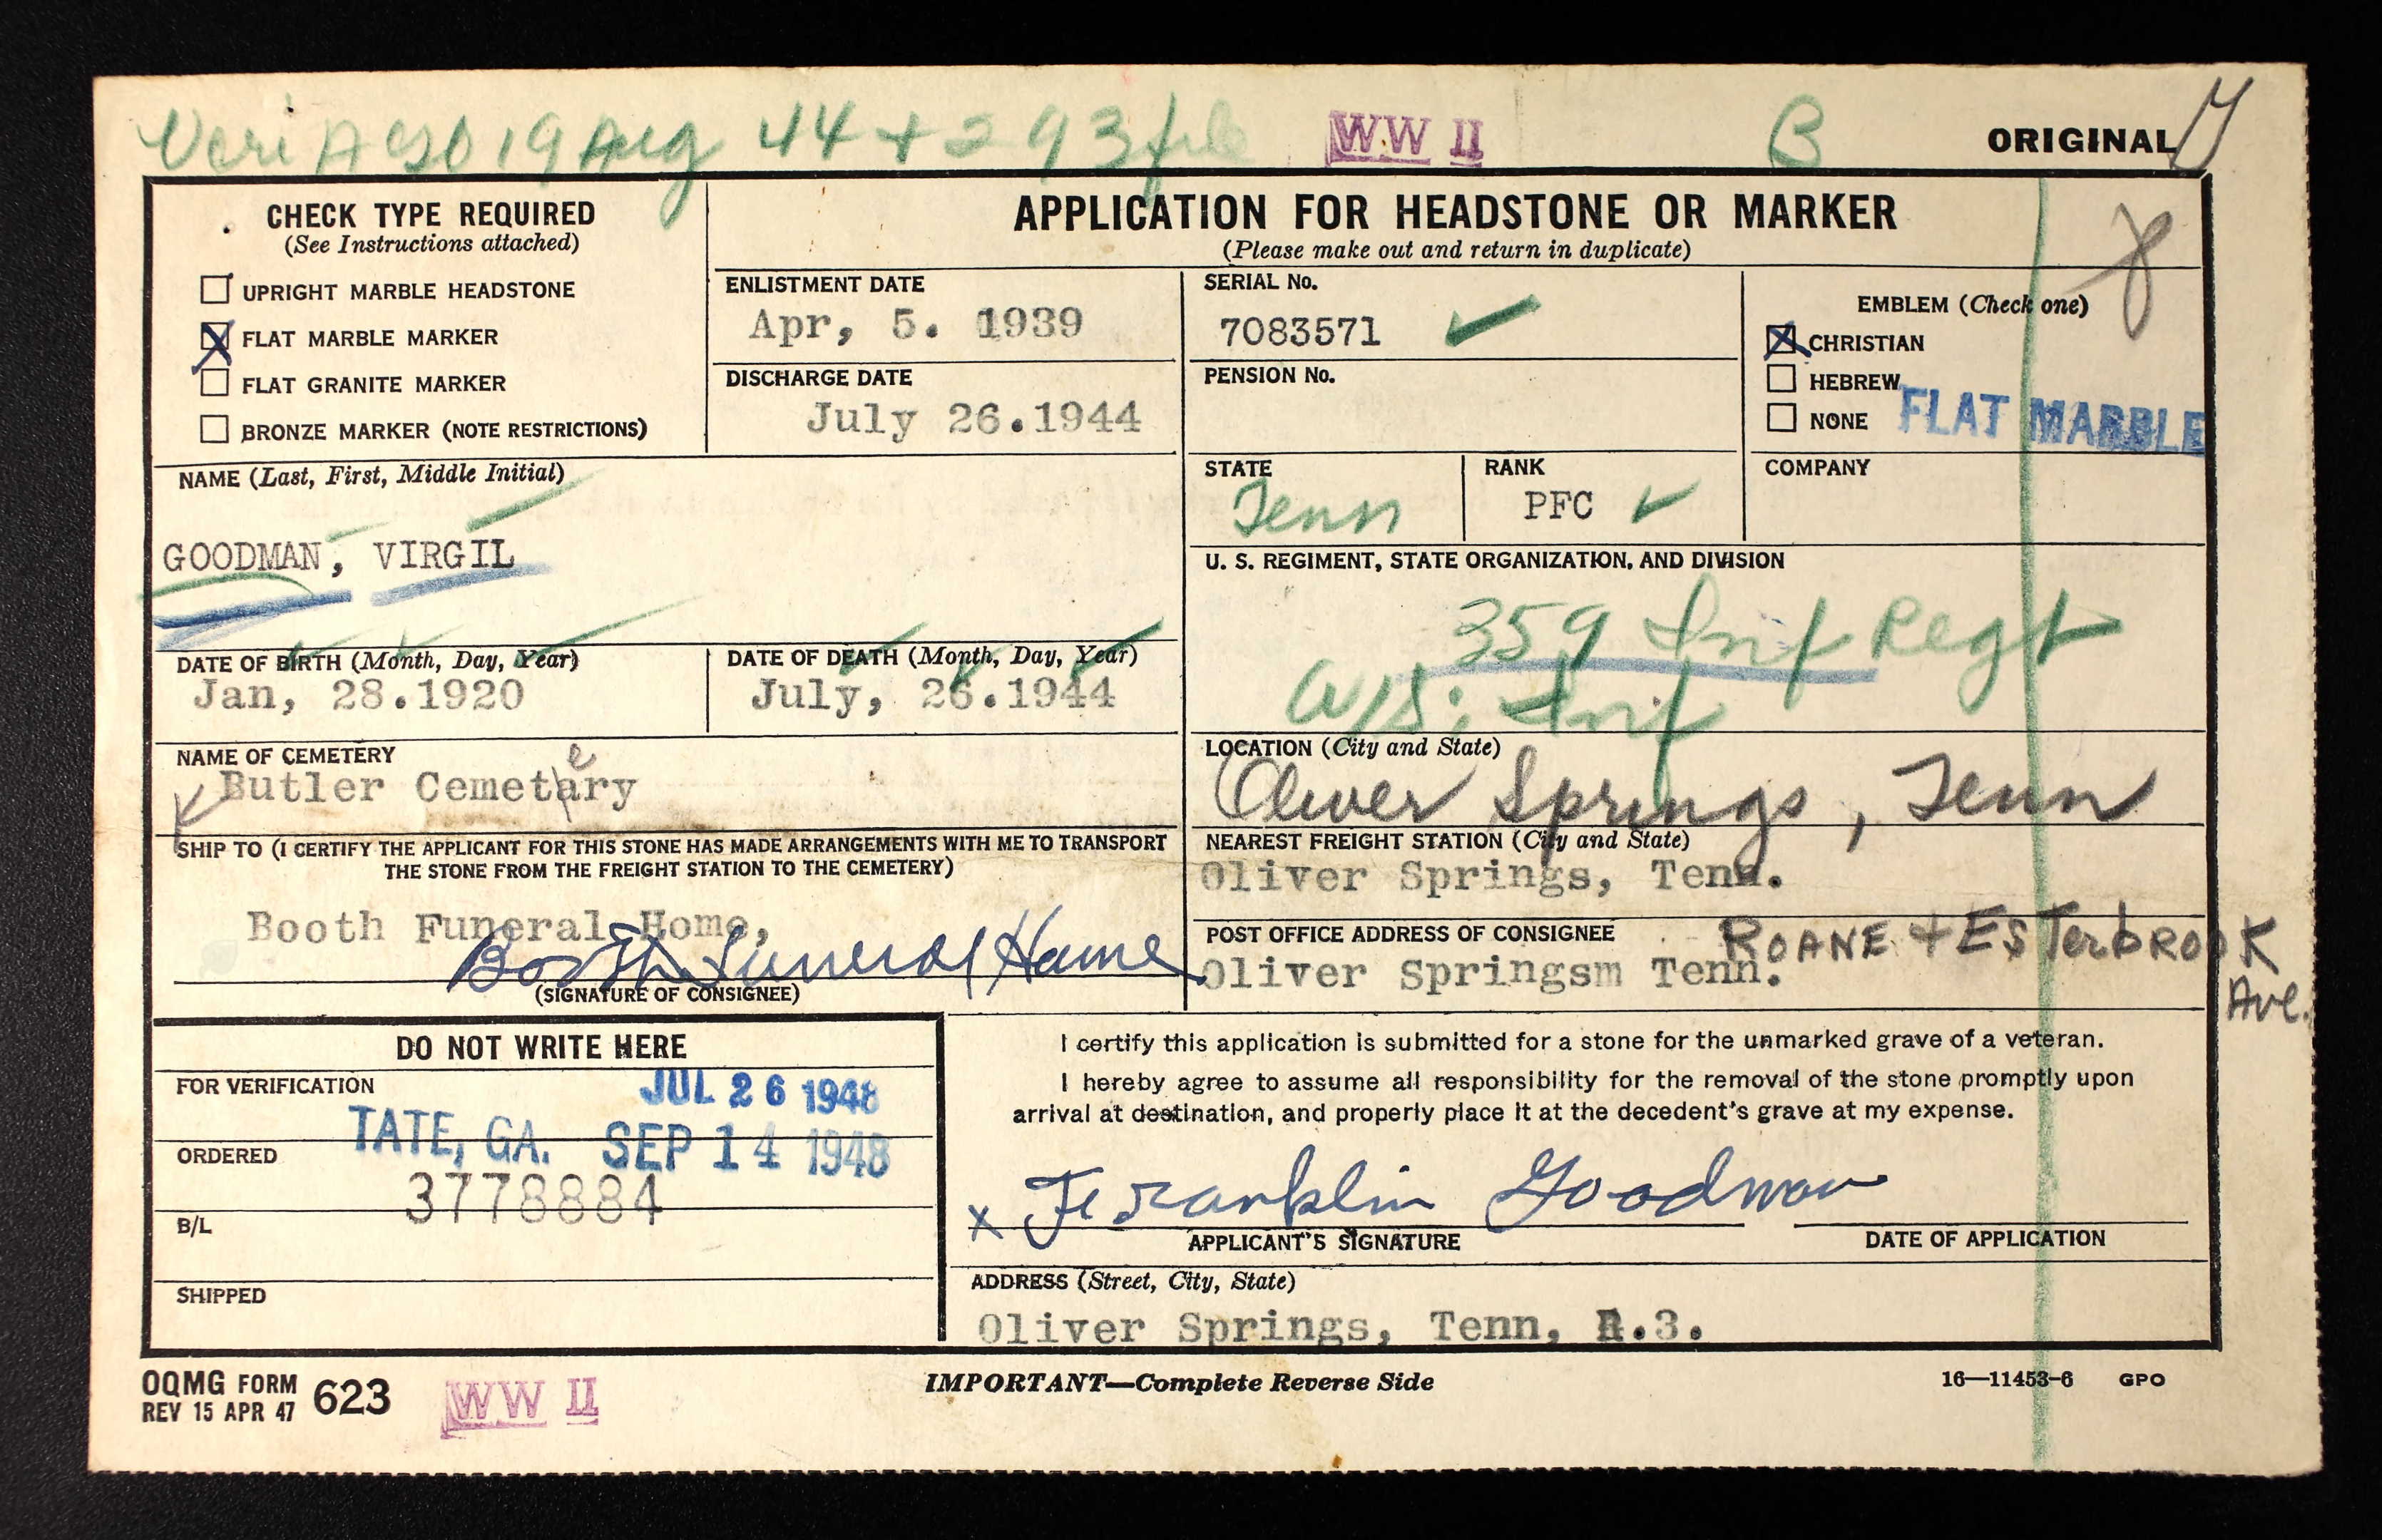 19 Aug 44 + 293 file
WW II
B
ORIGINAL
CHECK TYPE REQUIRED
(See Instructions attached)
UPRIGHT MARBLE HEADSTONE
X FLAT MARBLE MARKER
FLAT GRANITE MARKER
BRONZE MARKER (NOTE RESTRICTIONS)
APPLICATION FOR HEADSTONE OR MARKER
(Please make out and return in duplicate)
ENLISTMENT DATE
Apr, 5. 1939
DISCHARGE DATE
July 26.1944
SERIAL No.
7083571
PENSION No.
EMBLEM (Check one)
X CHRISTIAN
HEBREW
NONE
FLAT MARBLE
NAME (Last, First, Middle Initial)
GOODMAN, VIRGIL
STATE
Tenn
RANK
PFC
COMPANY
U. S. REGIMENT, STATE ORGANIZATION, AND DIVISION
359 Inf Regt
Inf
DATE OF BIRTH (Month, Day, Year)
Jan, 28.1920
DATE OF DEATH (Month, Day, Year)
July, 26.1944
NAME OF CEMETERY
Butler Cemetery
LOCATION (City and State)
Oliver Springs, Tenn
SHIP TO (I CERTIFY THE APPLICANT FOR THIS STONE HAS MADE ARRANGEMENTS WITH ME TO TRANSPORT
THE STONE FROM THE FREIGHT STATION TO THE CEMETERY)
Booth Funeral Home,
Booth Funeral Home
(SIGNATURE OF CONSIGNEE)
NEAREST FREIGHT STATION (City and State)
Oliver Springs, Tenn.
POST OFFICE ADDRESS OF CONSIGNEE
ROANE + ESTerbROOK
Ave.
Oliver Springsm Tenn.
DO NOT WRITE HERE
FOR VERIFICATION
JUL 26 1948
TATE, GA. SEP 14 1948
ORDERED
3778884
B/L
SHIPPED
I certify this application is submitted for a stone for the unmarked grave of a veteran.
I hereby agree to assume all responsibility for the removal of the stone promptly upon
arrival at destination, and properly place it at the decedent's grave at my expense.
x Franklin Goodman
APPLICANT'S SIGNATURE
DATE OF APPLICATION
ADDRESS (Street, City, State)
Oliver Springs, Tenn, R.3.
OQMG FORM 623
REV 15 APR 47
WW II
IMPORTANT—Complete Reverse Side
16—11453-6 GPO